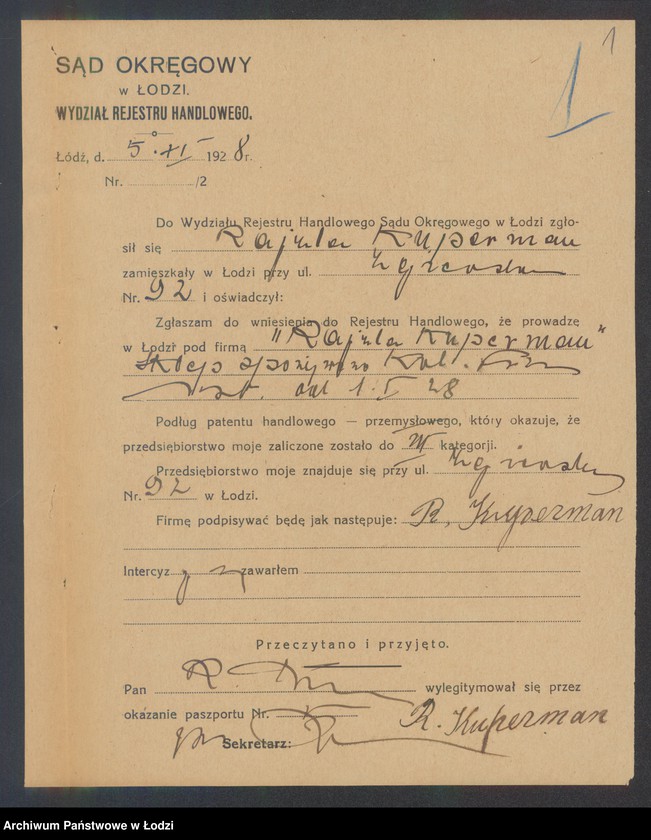 1
1
SĄD OKRĘGOWY
w ŁODZI.
WYDZIAŁ REJESTRU HANDLOWEGO.
Łódź, d. 5. XI 1928 r.
Nr. /2
Do Wydziału Rejestru Handlowego Sądu Okręgowego w Łodzi zgło-
sił się Rajzla Kuperman
zamieszkały w Łodzi przy ul. Zgierska
Nr. 92 i oświadczył:
Zgłaszam do wniesienia do Rejestru Handlowego, że prowadzę
w Łodzi pod firmą "Rajzla Kuperman"
Sklep spożywczo Kol.
od 1. I 28
Podług patentu handlowego — przemysłowego, który okazuje, że
przedsiębiorstwo moje zaliczone zostało do III kategorji.
Przedsiębiorstwo moje znajduje się przy ul. Zgierska
Nr. 92 w Łodzi.
Firmę podpisywać będę jak następuje: R. Kuperman
Intercyz zawarłem
Przeczytano i przyjęto.
Pan R. wylegitymował się przez
okazanie paszportu Nr.
R. Kuperman
Sekretarz:
Archiwum Państwowe w Łodzi